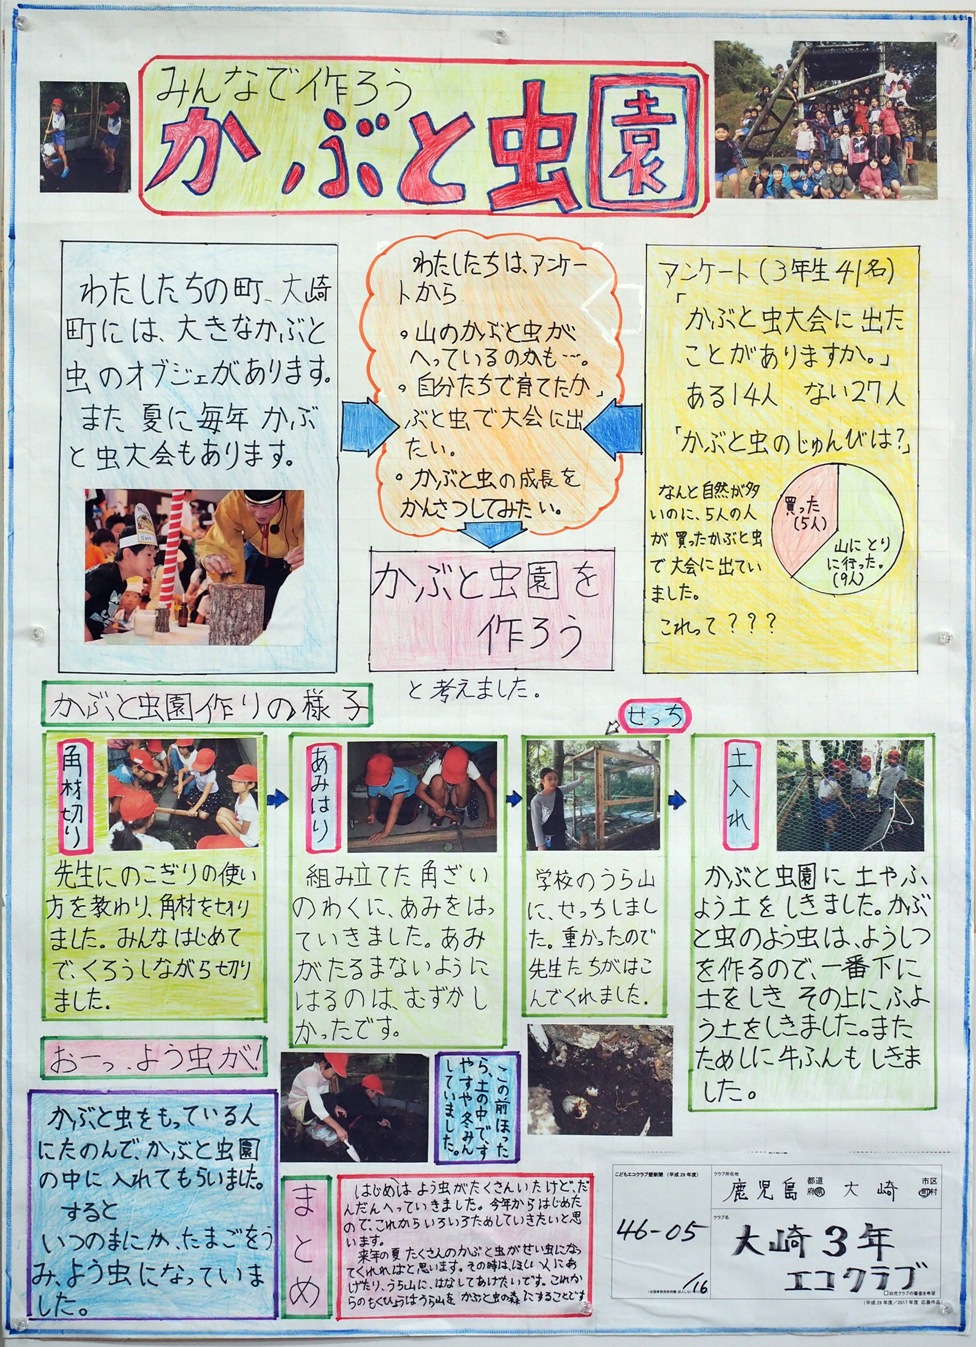 みんなで作ろう
かぶと虫園
わたしたちの町、大崎
町には、大きなかぶと
虫のオブジェがあります。
また夏に毎年かぶ
と虫大会もあります。
わたしたちは、アンケー
トから
・山のかぶと虫が
へっているのかも…。
・自分たちで育てたか
ぶと虫で大会に出
たい。
・かぶと虫の成長を
かんさつしてみたい。
かぶと虫園を
作ろう
と考えました。
アンケート(3年生41名)
「かぶと虫大会に出た
ことがありますか。」
ある14人 ない27人
「かぶと虫のじゅんびは?」
なんと自然が多
いのに、5人の人
が買ったかぶと虫
で大会に出てい
ました。
これって???
買った
(5人)
山にとり
に行った。
(9人)
かぶと虫園作りの様子
角材切り
先生にのこぎりの使い
方を教わり、角材を切り
ました。みんなはじめて
で、くろうしながら切り
ました。
あみはり
組み立てた角ざい
のわくに、あみをはっ
ていきました。あみ
がたるまないように
はるのは、むずかし
かったです。
せっち
学校のうら山
に、せっちしまし
た。重かったので
先生たちがはこ
んでくれました。
土入れ
かぶと虫園に土やふ
よう土をしきました。かぶ
と虫のよう虫は、ようしつ
を作るので、一番下に
土をしき その上に、ふよ
う土をしきました。また
ためしに牛ふんもしきま
した。
おーっ、よう虫が!
かぶと虫をもっている人
にたのんで、かぶと虫園
の中に入れてもらいました。
すると
いつのまにか、たまごをう
み、よう虫になっていま
した。
この前ほった
ら、土の中で、す
やすや冬みん
していました。
まとめ
はじめは よう虫がたくさんいたけど、だ
んだんへっていきました。今年からはじめた
ので、これからいろいろためしていきたいと思
います。
来年の夏 たくさんのかぶと虫がせい虫になっ
てくれればと思います。その時は、ほしい人にあ
げたり、うら山に、はなしてあげたいです。これか
らのもくひょうはうら山を かぶと虫の森にすることです
こどもエコクラブ壁新聞 (平成29年度)
46-05
/16
クラブ所在地
鹿児島 都道府県 大崎 市区町村
クラブ名
大崎3年
エコクラブ
(平成29年度/2017年度 応募作品)